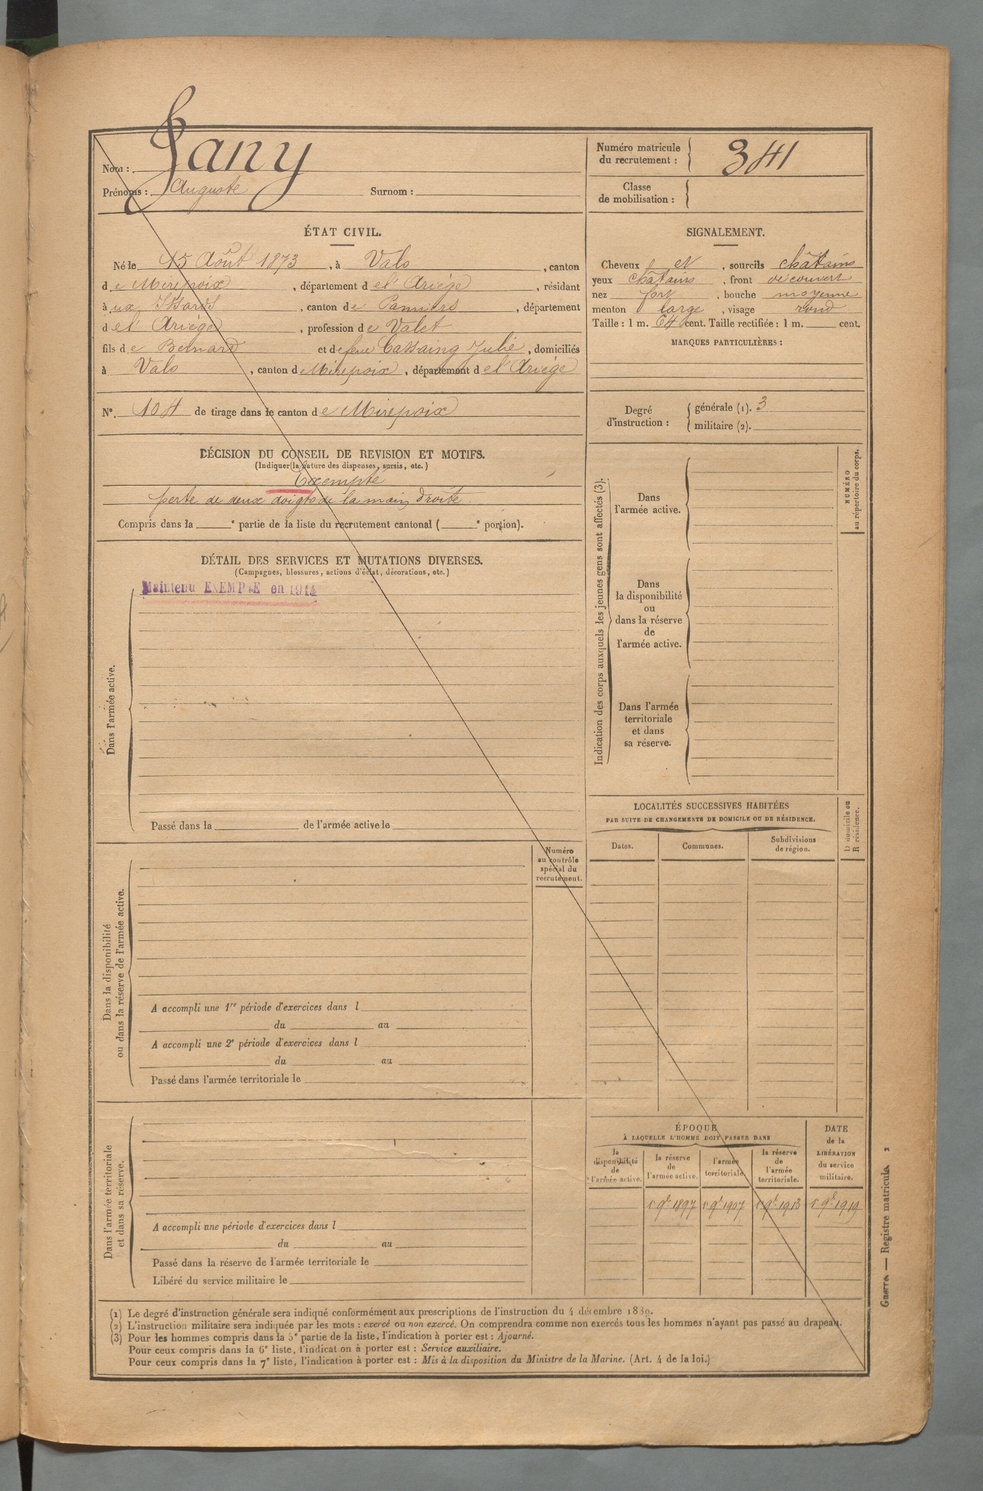 Nom : Jany
Prénoms : Auguste Surnom :
Numéro matricule du recrutement : 341
Classe de mobilisation :
ÉTAT CIVIL.
Né le 15 Août 1873, à Vals, canton
de Mirepoix, département de l'Ariège, résidant
à aux Issards, canton de Pamiers, département
de l'Ariège, profession de Valet
fils de Bernard et de feue Cassaing Julie, domiciliés
à Vals, canton de Mirepoix, département de l'Ariège
N° 104 de tirage dans le canton de Mirepoix
SIGNALEMENT.
Cheveux et, sourcils châtains
yeux châtains, front découvert
nez fort, bouche moyenne
menton large, visage rond
Taille : 1 m. 64 cent. Taille rectifiée : 1 m. cent.
MARQUES PARTICULIÈRES :
Degré d'instruction : générale (1). 3
militaire (2).
DÉCISION DU CONSEIL DE REVISION ET MOTIFS.
(Indiquer la nature des dispenses, sursis, etc.)
Exempté
perte de deux doigts de la main droite
Compris dans la e partie de la liste du recrutement cantonal ( e portion).
DÉTAIL DES SERVICES ET MUTATIONS DIVERSES.
(Campagnes, blessures, actions d'éclat, décorations, etc.)
Maintenu EXEMPTÉ en 1914
Dans l'armée active.
Passé dans la de l'armée active le
Indication des corps auxquels les jeunes gens sont affectés (3).
NUMÉRO
au répertoire du corps.
Dans
l'armée active.
Dans
la disponibilité
ou
dans la réserve
de
l'armée active.
Dans l'armée
territoriale
et dans
sa réserve.
LOCALITÉS SUCCESSIVES HABITÉES
PAR SUITE DE CHANGEMENTS DE DOMICILE OU DE RÉSIDENCE.
Dates. Communes. Subdivisions de région.
D domicile ou
R résidence.
Numéro
au contrôle
spécial du
recrutement.
Dans la disponibilité
ou dans la réserve de l'armée active.
A accompli une 1re période d'exercices dans l
du au
A accompli une 2e période d'exercices dans l
du au
Passé dans l'armée territoriale le
Dans l'armée territoriale
et dans sa réserve.
A accompli une période d'exercices dans l
du au
Passé dans la réserve de l'armée territoriale le
Libéré du service militaire le
ÉPOQUE
À LAQUELLE L'HOMME DOIT PASSER DANS
la disponibilité de l'armée active.
la réserve de l'armée active.
l'armée territoriale.
la réserve de l'armée territoriale.
DATE de la LIBÉRATION du service militaire.
1er 9bre 1897 1er 9bre 1907 1er 9bre 1913 1er 9bre 1919
(1) Le degré d'instruction générale sera indiqué conformément aux prescriptions de l'instruction du 4 décembre 1889.
(2) L'instruction militaire sera indiquée par les mots : exercé ou non exercé. On comprendra comme non exercés tous les hommes n'ayant pas passé au drapeau.
(3) Pour les hommes compris dans la 5e partie de la liste, l'indication à porter est : Ajourné.
Pour ceux compris dans la 6e liste, l'indication à porter est : Service auxiliaire.
Pour ceux compris dans la 7e liste, l'indication à porter est : Mis à la disposition du Ministre de la Marine. (Art. 4 de la loi.)
Guerre. — Registre matricule. 2